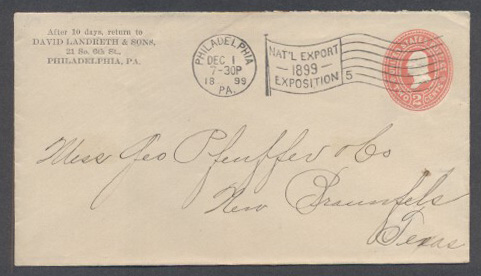 After 10 days, return to
DAVID LANDRETH & SONS,
21 So. 6th St.,
PHILADELPHIA, PA.
PHILADELPHIA
DEC 1
7-30P
18 99
PA.
NAT'L EXPORT
1899
EXPOSITION
5
UNITED STATES
TWO 2 CENTS
Mess Geo Pfeuffer & Co
New Braunfels
Texas